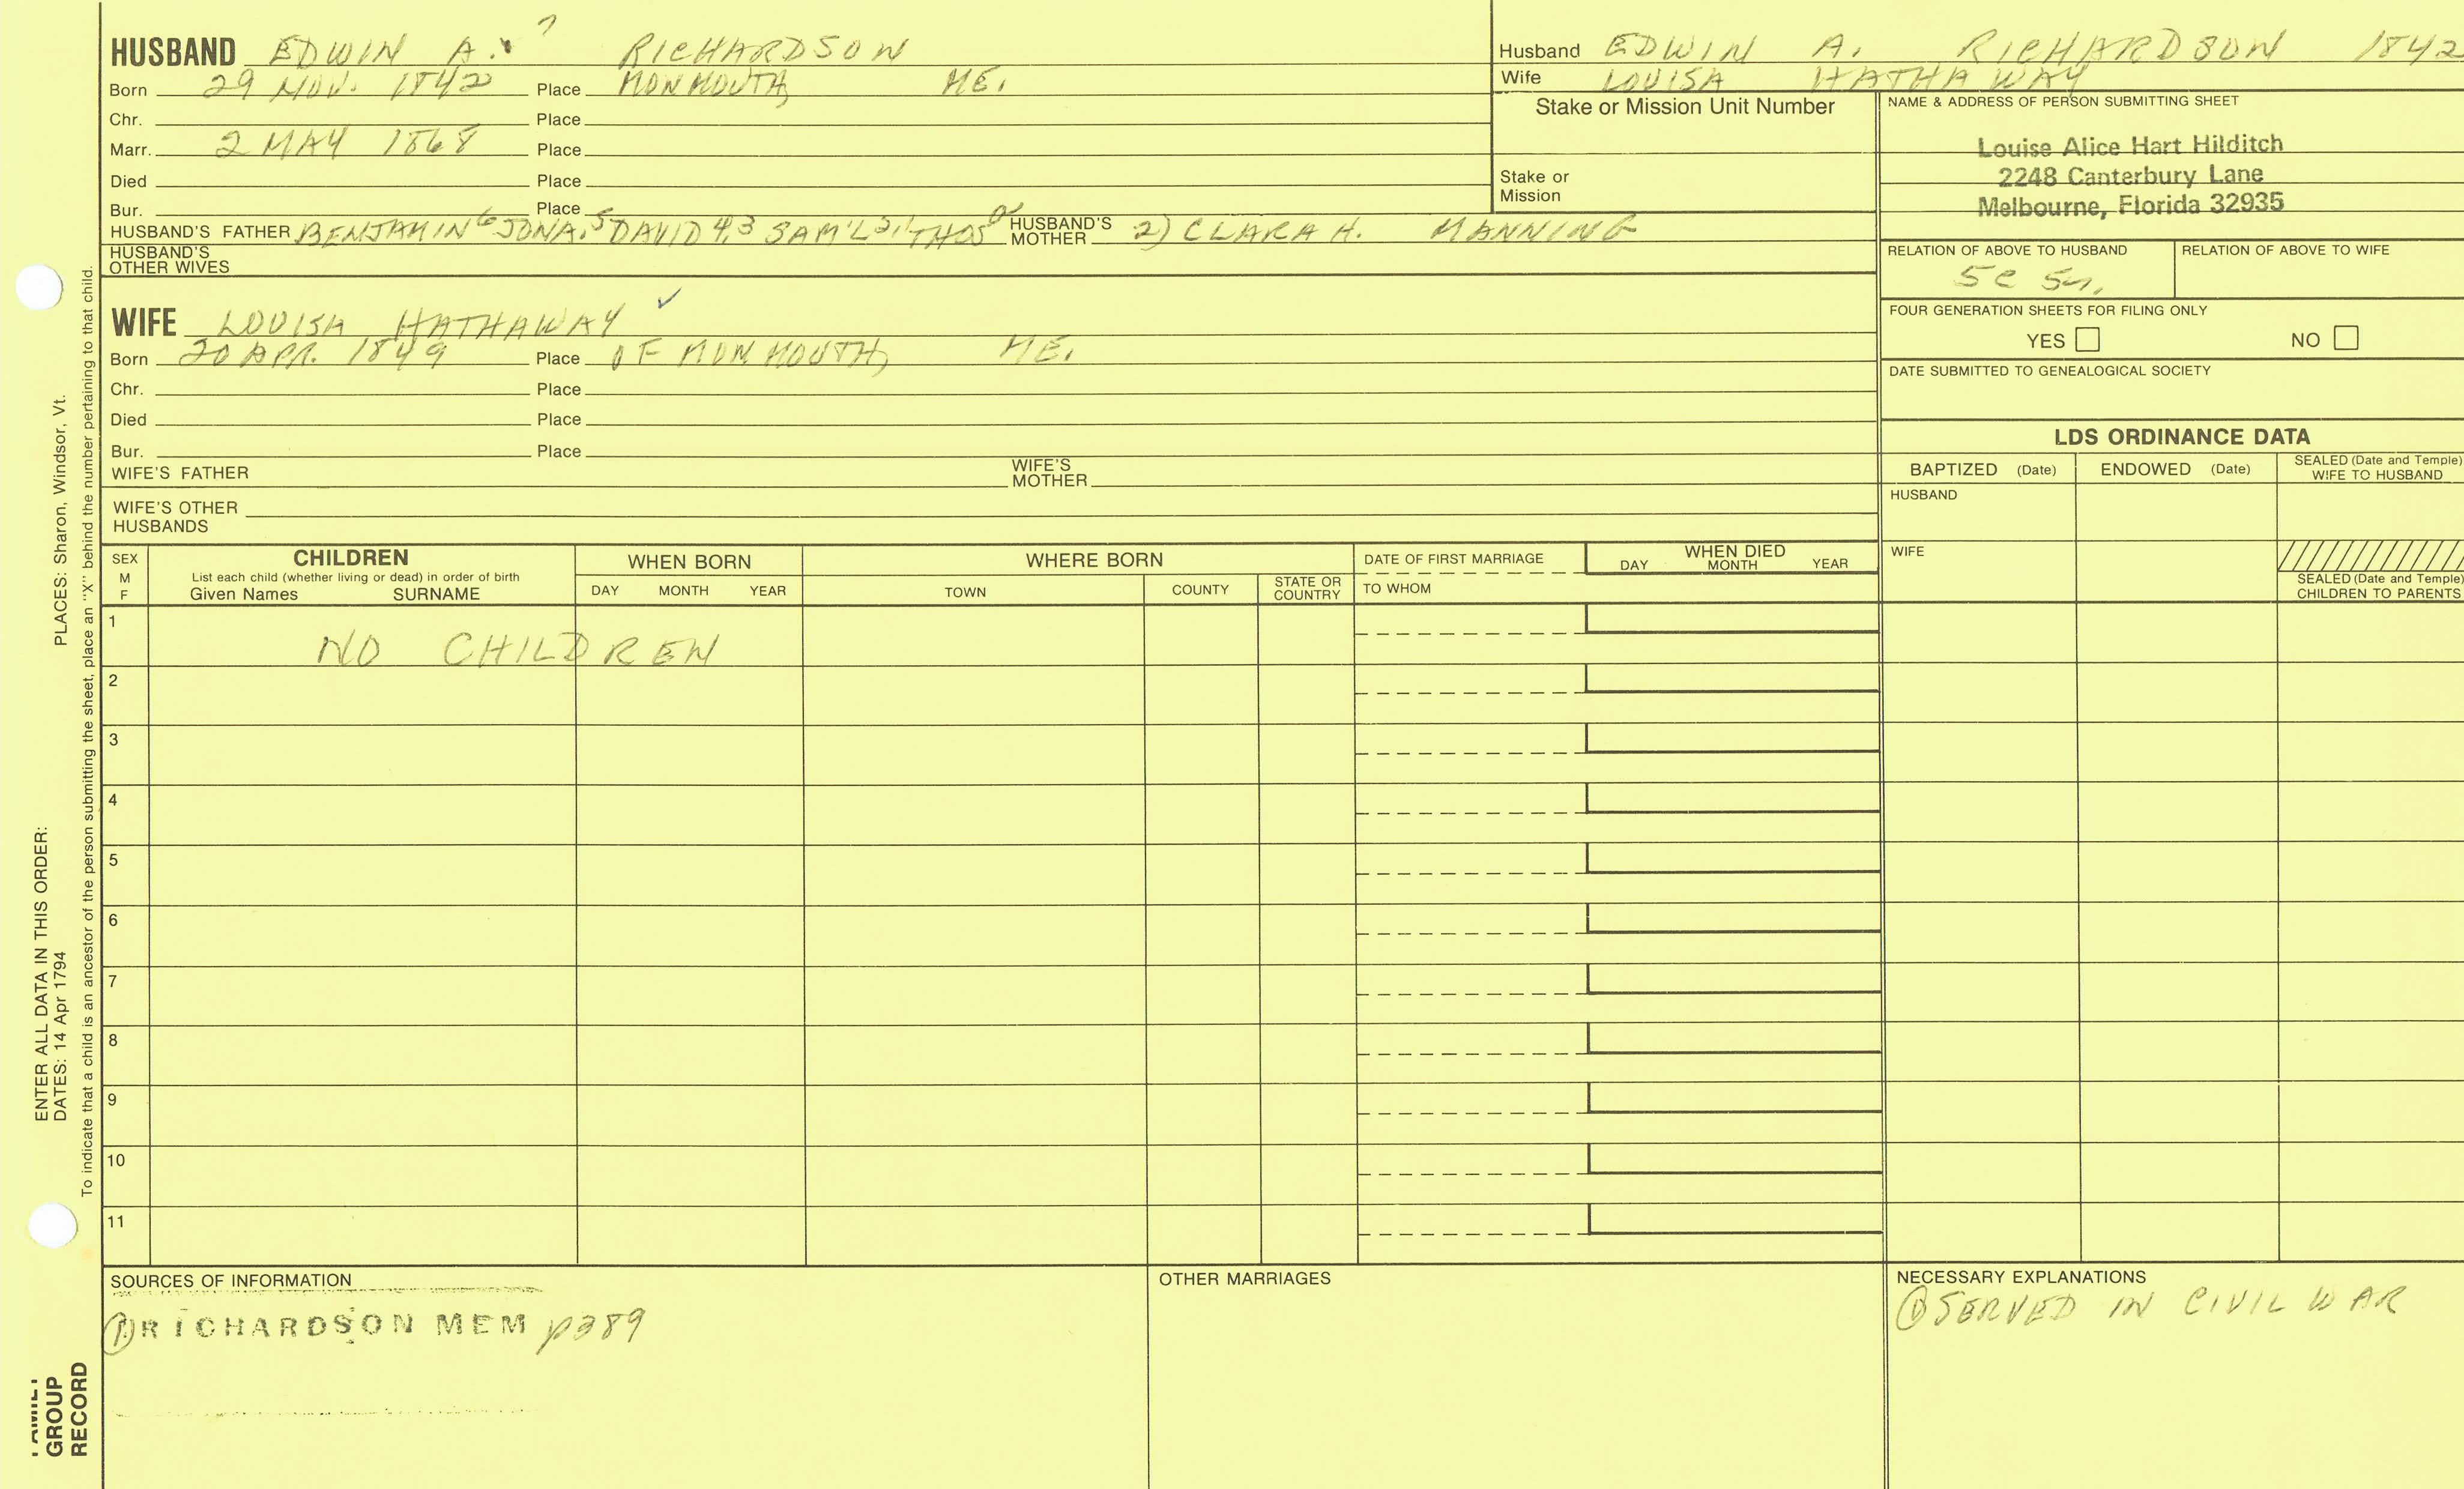 HUSBAND EDWIN A. 7 RICHARDSON
Born 29 NOV. 1842 Place MONMOUTH, ME.
Chr. Place
Marr. 2 MAY 1868 Place
Died Place
Bur. Place
HUSBAND'S FATHER BENJAMIN 6 JONA. 5 DAVID 4,3 SAM'L 2, THOS HUSBAND'S MOTHER 2) CLARA H. MANNING
HUSBAND'S OTHER WIVES
Husband EDWIN A. RICHARDSON 1842
Wife LOUISA HATHAWAY
Stake or Mission Unit Number
Stake or
Mission
NAME & ADDRESS OF PERSON SUBMITTING SHEET
Louise Alice Hart Hilditch
2248 Canterbury Lane
Melbourne, Florida 32935
RELATION OF ABOVE TO HUSBAND RELATION OF ABOVE TO WIFE
5C
FOUR GENERATION SHEETS FOR FILING ONLY
YES NO
DATE SUBMITTED TO GENEALOGICAL SOCIETY
WIFE LOUISA HATHAWAY ✓
Born 20 APR. 1849 Place OF MONMOUTH, ME.
Chr. Place
Died Place
Bur. Place
WIFE'S FATHER WIFE'S MOTHER
WIFE'S OTHER
HUSBANDS
LDS ORDINANCE DATA
BAPTIZED (Date) ENDOWED (Date) SEALED (Date and Temple) WIFE TO HUSBAND
HUSBAND
WIFE
SEALED (Date and Temple)
CHILDREN TO PARENTS
SEX
M
F
CHILDREN
List each child (whether living or dead) in order of birth
Given Names SURNAME
WHEN BORN
DAY MONTH YEAR
WHERE BORN
TOWN COUNTY STATE OR COUNTRY
DATE OF FIRST MARRIAGE
TO WHOM
WHEN DIED
DAY MONTH YEAR
1 NO CHILDREN
2
3
4
5
6
7
8
9
10
11
SOURCES OF INFORMATION
① RICHARDSON MEM p389
OTHER MARRIAGES
NECESSARY EXPLANATIONS
① SERVED IN CIVIL WAR
ENTER ALL DATA IN THIS ORDER:
DATES: 14 Apr 1794 PLACES: Sharon, Windsor, Vt.
To indicate that a child is an ancestor of the person submitting the sheet, place an "X" behind the number pertaining to that child.
FAMILY
GROUP
RECORD